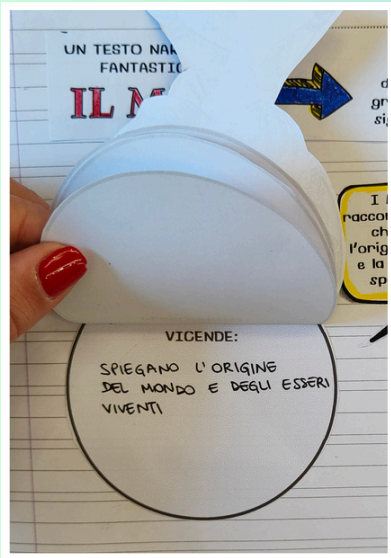 UN TESTO NAR
FANTASTIC
IL M
d
gr
sig
I
raccon
ch
l'orig
e la
sp
VICENDE:
SPIEGANO L'ORIGINE
DEL MONDO E DEGLI ESSERI
VIVENTI